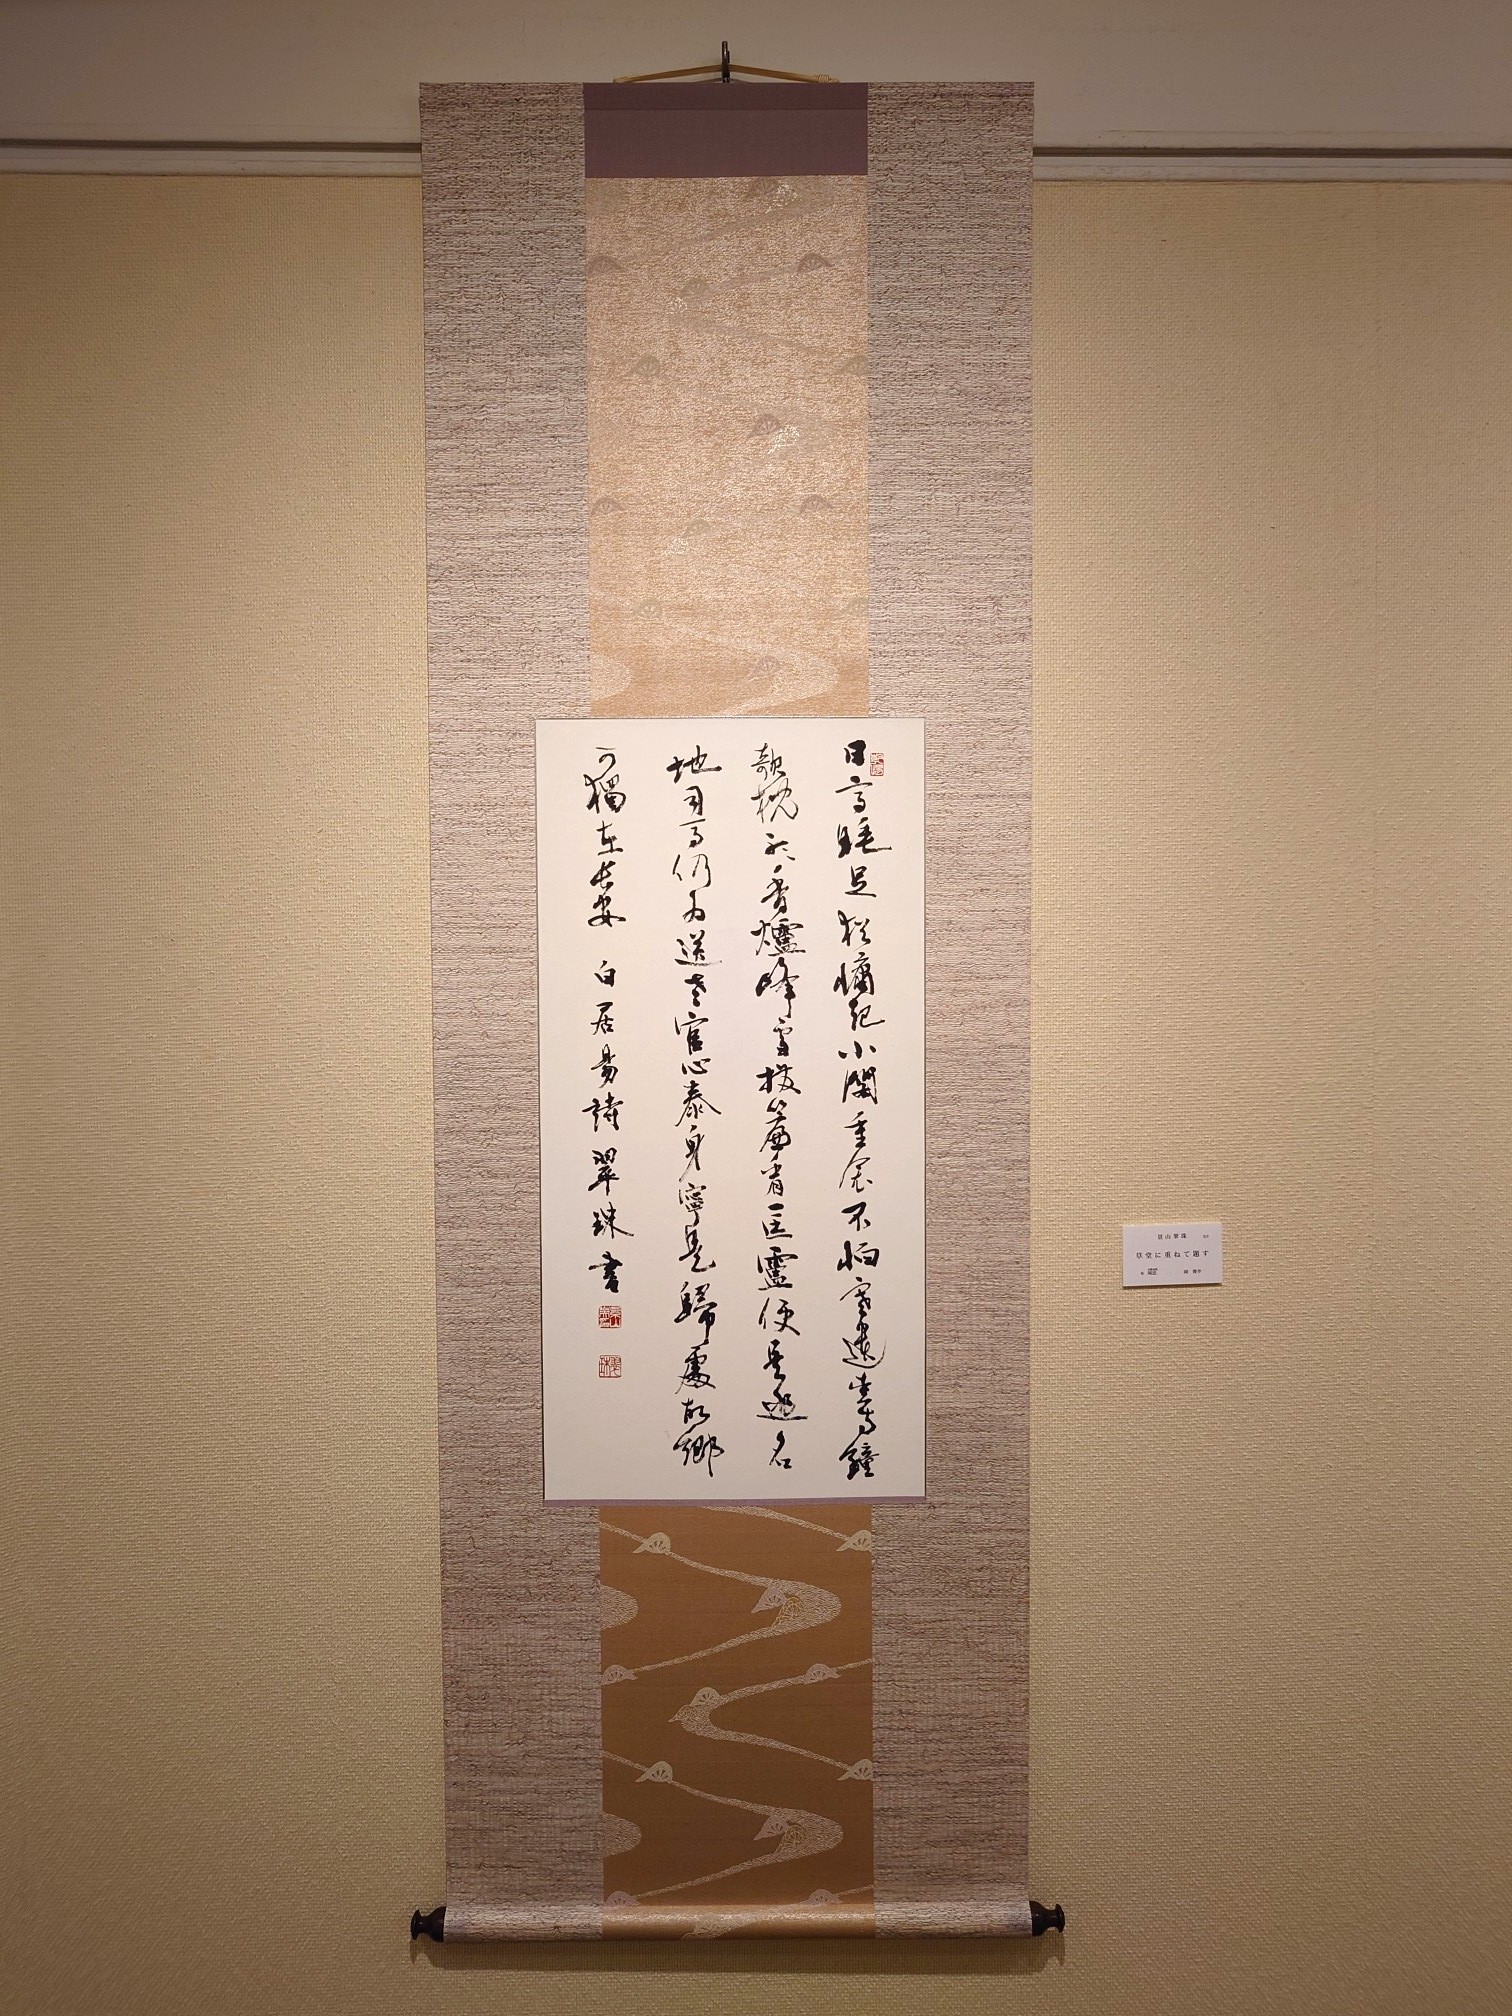 日高睡足猶慵起小閣重衾不怕寒遺愛寺鐘
欹枕聽香爐峰雪撥簾看匡廬便是逃名
地司馬仍為送老官心泰身寧是歸處故鄉
可獨在長安 白居易詩 翠珠書
草堂に重ねて題す